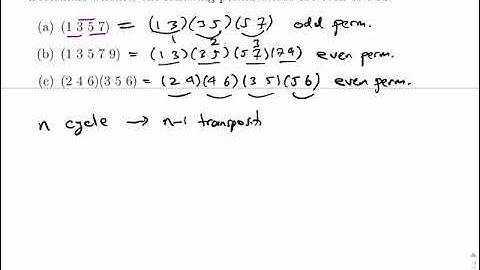 (a) (1 3 5 7) = (1 3)(3 5)(5 7) odd perm.
1 2 3
(b) (1 3 5 7 9) = (1 3)(3 5)(5 7)(7 9) even perm.
(c) (2 4 6)(3 5 6) = (2 4)(4 6)(3 5)(5 6) even perm.
n cycle → n-1 transpositi